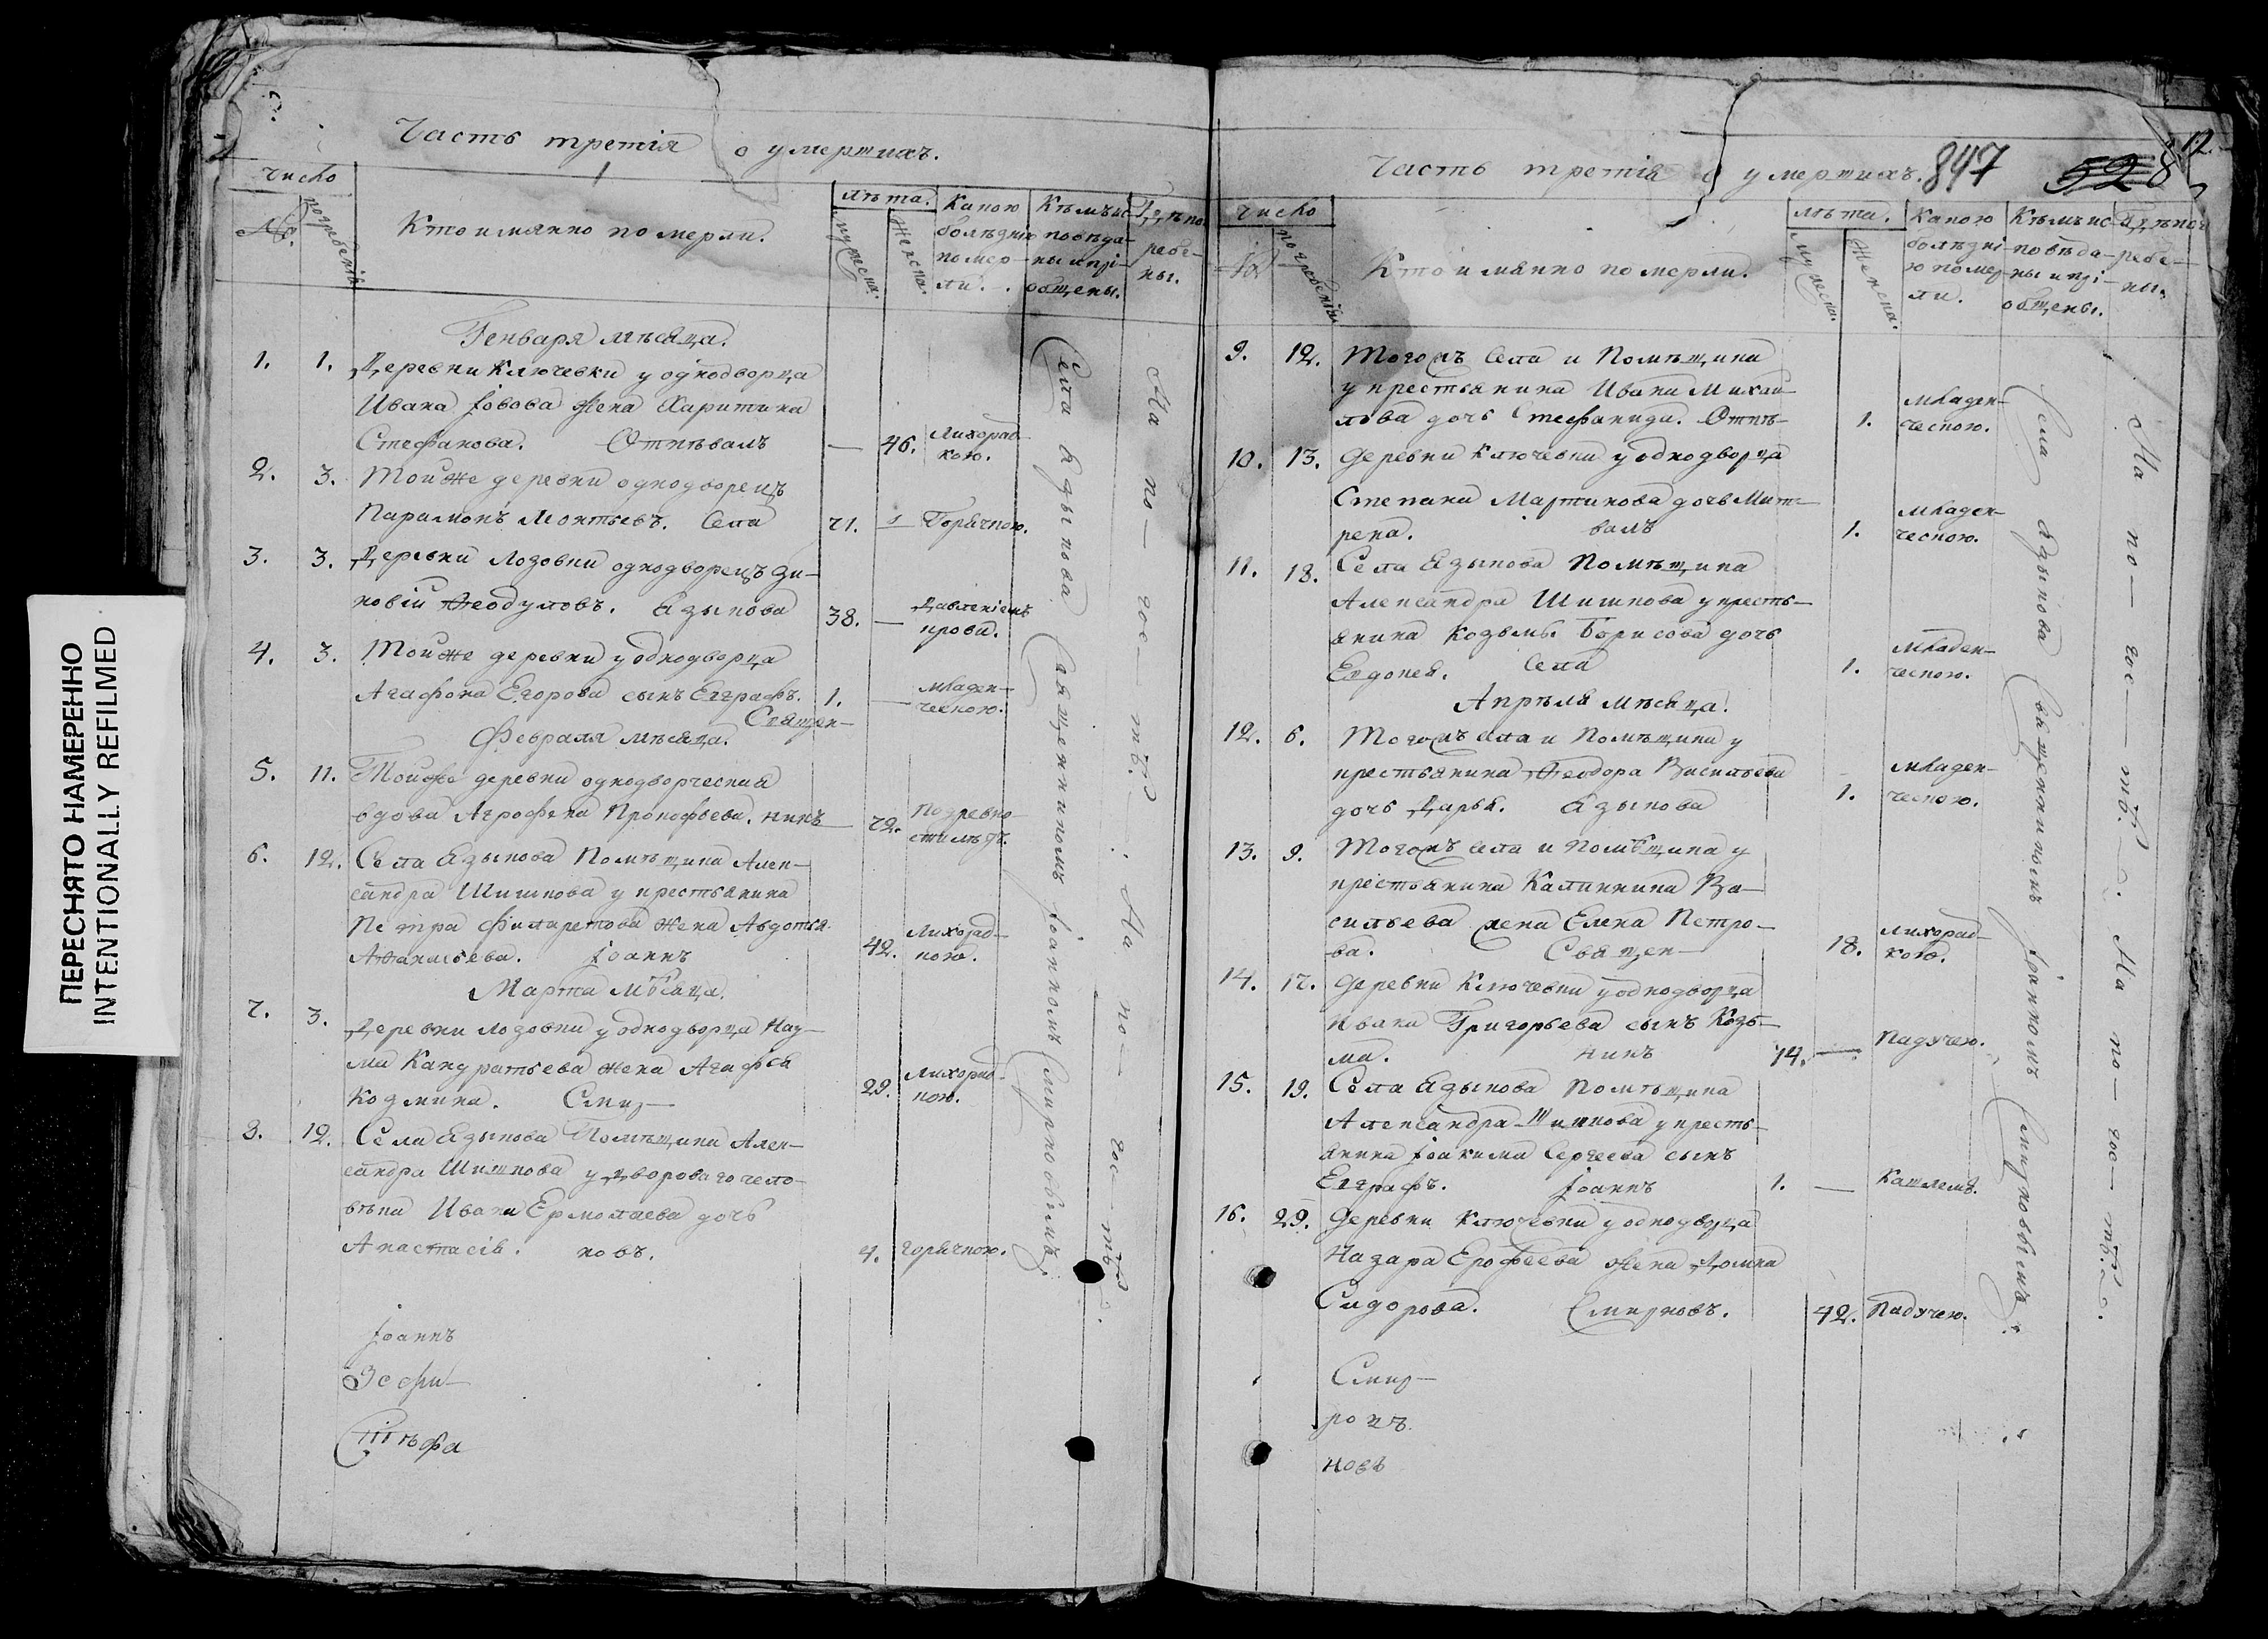 ПЕРЕСНЯТО НАМЕРЕННО
INTENTIONALLY REFILMED
Часть третія о умершихъ.
число
№.
погребенія
Кто имянно померли.
лѣта.
мужеска.
женска.
Какою
болѣднію
помер-
ли.
Кѣмъ ис-
повѣда-
ны и прі-
общены.
Гдѣ пог
ребе-
ны.
Генваря мѣсяца.
1. 1. Деревни Ключевки у однодворца
Ивана Іовова жена Харитина
Стефанова. Отпѣвалъ — 46. Лихорад-
кою.
2. 3. Той же деревни однодворецъ
Парамонъ Леонтьевъ. Села 71. — Горячкою.
3. 3. Деревни Лозовки однодворецъ Зи-
новій Ѳеодуловъ. Языкова 38. — Давленіемъ
крови.
4. 3. Той же деревни у однодворца
Агафона Егорова сынъ Евграфъ. 1. — Младен-
ческою.
Священ-
Февраля мѣсяца.
5. 11. Той же деревни однодворческая
вдова Агрофена Прокофьева. никъ — 72. Подревно-
сти лѣтъ.
6. 12. Села Языкова Помѣщика Алек-
сандра Шишкова у крестьянина
Петра Филаретова жена Авдотья
Аѳанасьева. Іоаннъ 42. Лихорад-
кою.
Марта мѣсяца.
7. 3. Деревни Лозовки у однодворца Нау-
ма Кандратьева жена Агафья
Козмина. Смир- 29. Лихорад-
кою.
8. 12. Села Языкова Помѣщика Алек-
сандра Шишкова у дворового чело-
вѣка Ивана Ермолаева дочь
Анастасія. новъ. 4. горячкою.
Села Языкова Священникомъ Іоанномъ Смирновымъ.
На по- гос- тѣ.
На по- гос- тѣ.
Іоаннъ
Часть третія о умершихъ.
847
528
12.
число
№
погребенія
Кто имянно померли.
лѣта.
мужеска.
женска.
Какою
болѣдні-
ю помер-
ли.
Кѣмъ ис-
повѣда-
ны и прі-
общены.
Гдѣ пог
ребе-
ны.
9. 12. Того жъ Села и Помѣщика
у крестьянина Ивана Михаи-
лова дочь Стефанида. Отпѣ- 1. Младен-
ческою.
10. 13. Деревни Ключевки у однодворца
Степана Мартинова дочь Мат-
рена. валъ 1. Младен-
ческою.
11. 18. Села Языкова Помѣщика
Александра Шишкова у кресть-
янина Козьмы Борисова дочь
Евдокея. Села 1. Младен-
ческою.
Апрѣля мѣсяца.
12. 6. Того жъ села и Помѣщика у
крестьянина Ѳеодора Васильева
дочь Дарья. Языкова 1. Младен-
ческою.
13. 9. Того жъ села и Помѣщика у
крестьянина Калинника Ва-
сильева жена Елена Петро-
ва. Священ- 18. Лихорад-
кою.
14. 17. Деревни Ключевки у однодворца
Ивана Григорьева сынъ Козь-
ма. никъ 14. — Падучею.
15. 19. Села Языкова Помѣщика
Александра Шишкова у кресть-
янина Іоакима Сергеева сынъ
Евграфъ. Іоаннъ 1. — Кашлемъ.
16. 29. Деревни Ключевки у однодворца
Назара Ерофеева жена Домна
Сидорова. Смирновъ. 42. Падучею.
Села Языкова Священникомъ Іоанномъ Смирновымъ.
На по- гос- тѣ.
На по- гос- тѣ.
Смир-
новъ